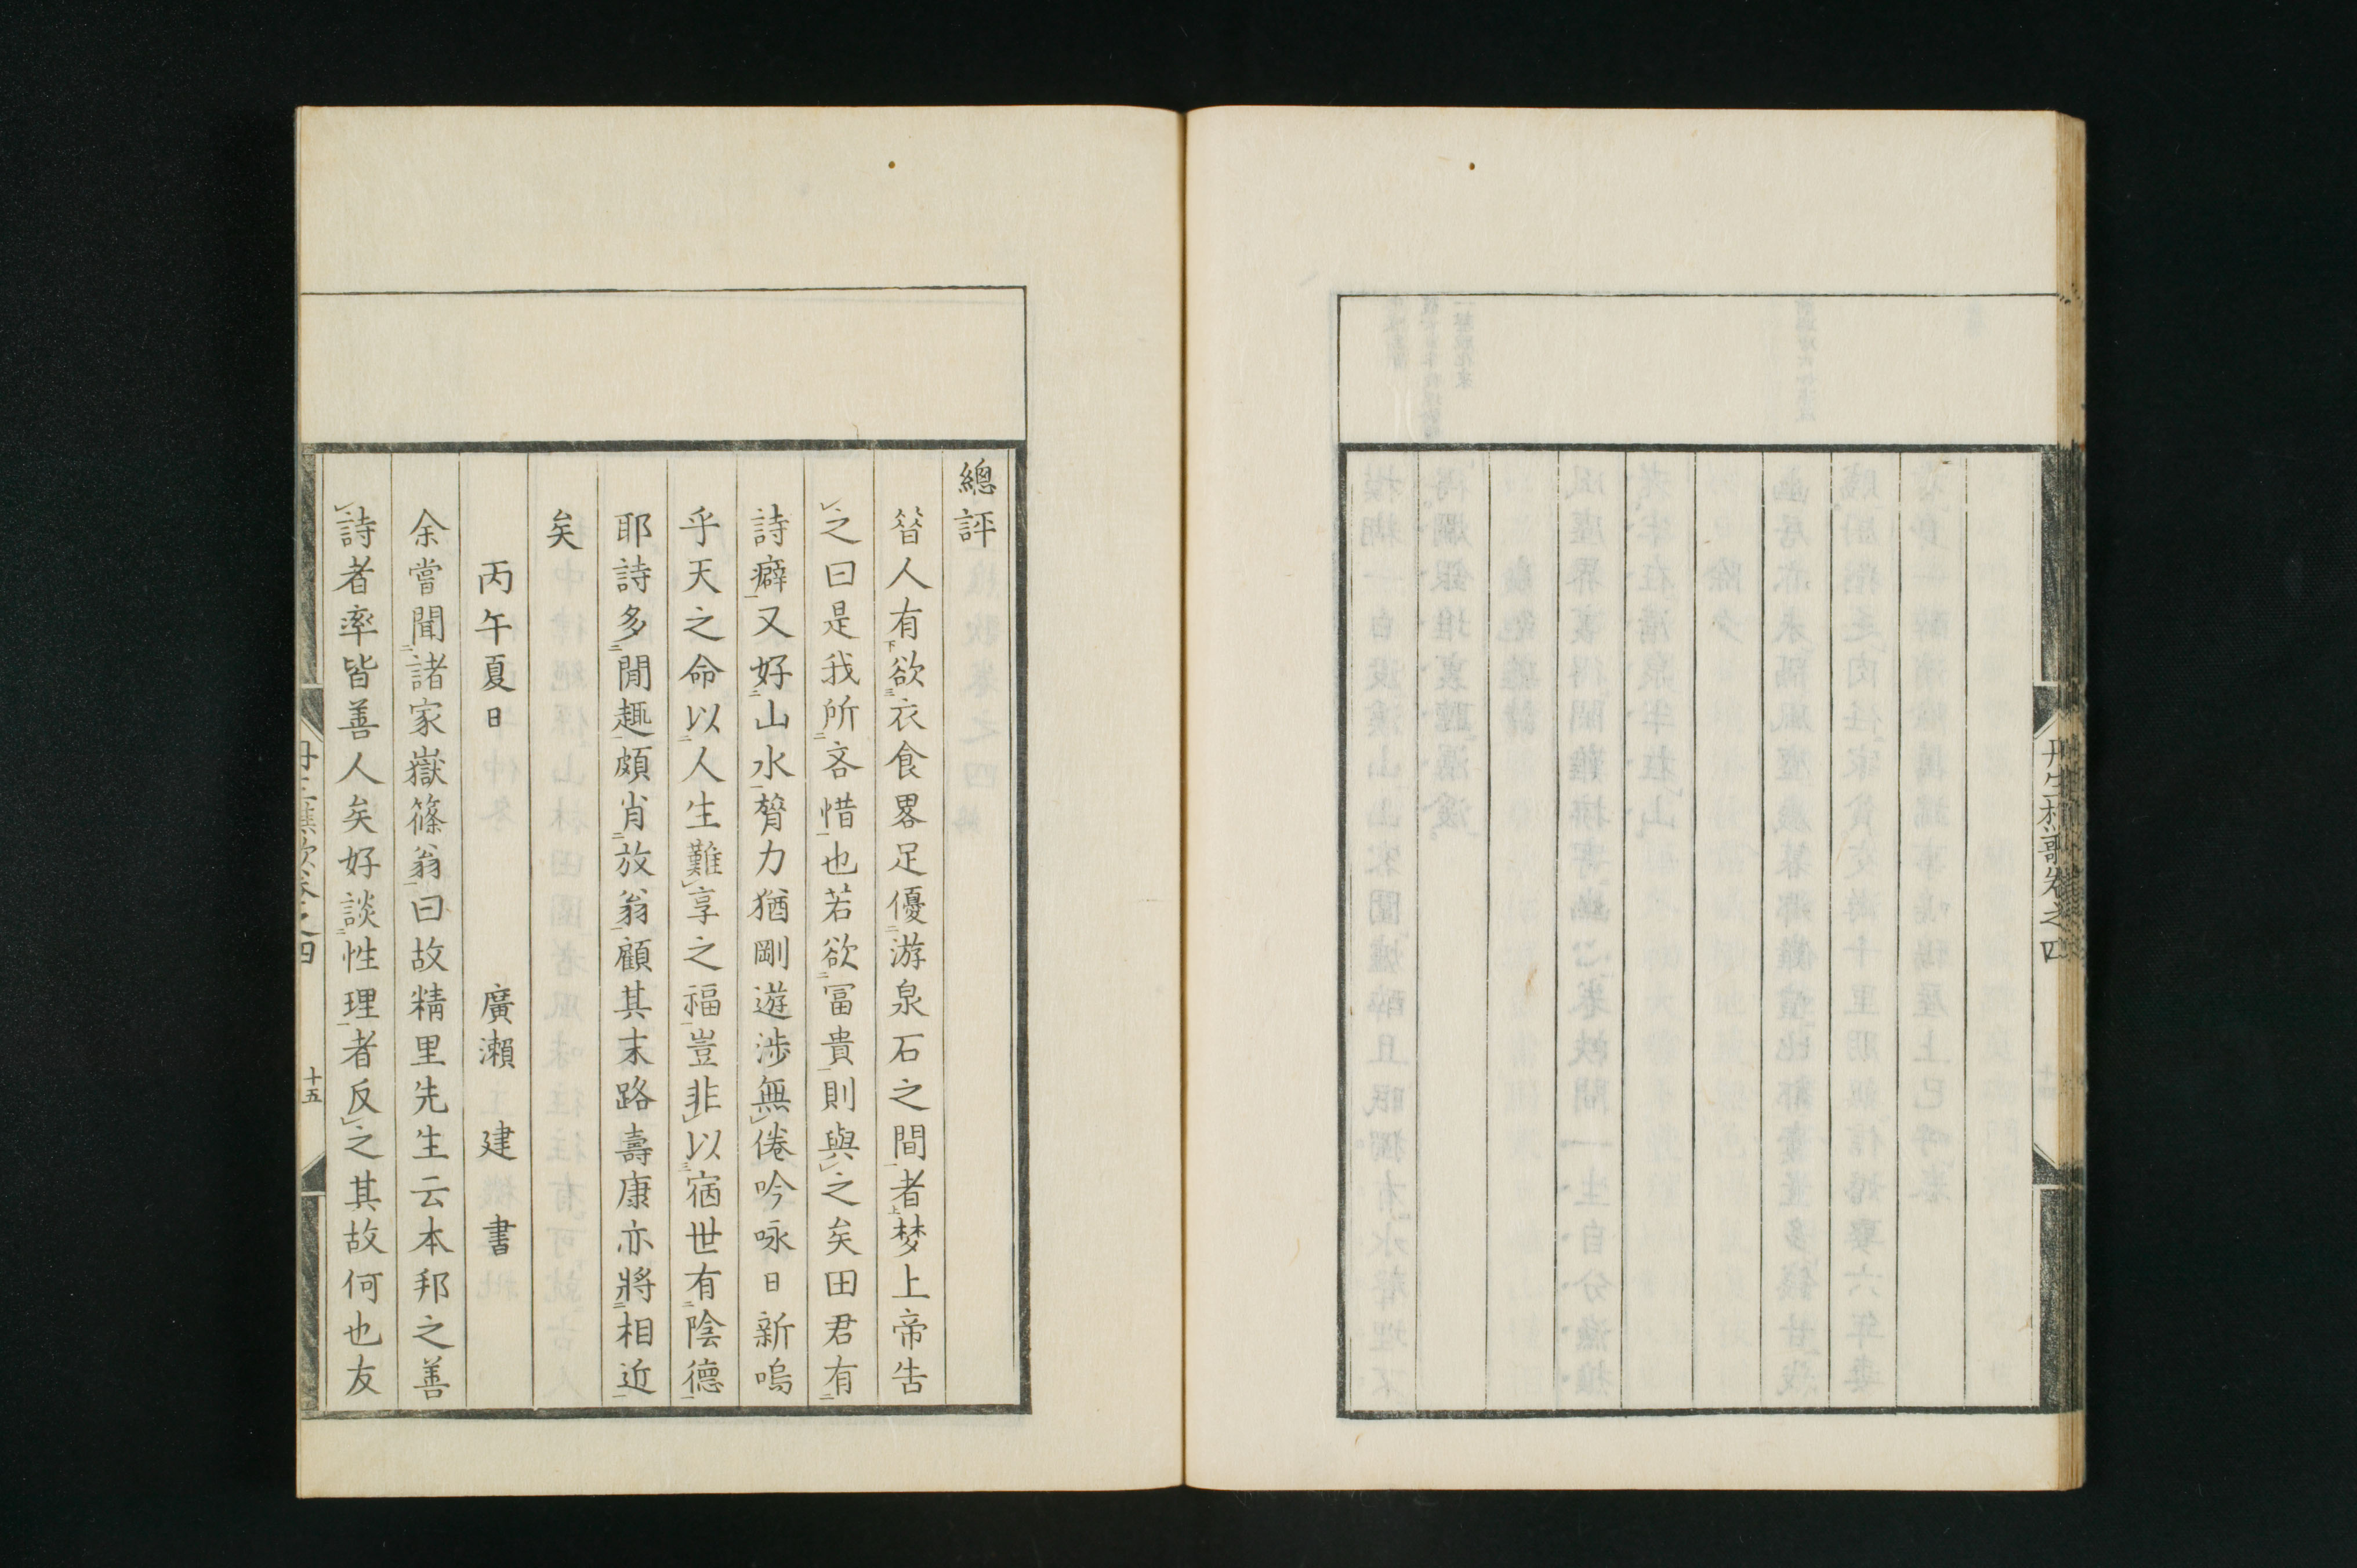 總評
昝人有欲衣食畧足優游泉石之間者梦上帝告
之曰是我所吝惜也若欲冨貴則與之矣田君有
詩癖又好山水膂力猶剛遊渉無倦吟咏日新嗚
乎天之命以人生難享之福豈非以宿世有陰德
耶詩多閒趣頗肖放翁顧其末路壽康亦將相近
矣
丙午夏日 廣瀨建書
余嘗聞諸家嶽篠翁曰故精里先生云本邦之善
詩者率皆善人矣好談性理者反之其故何也友
十五